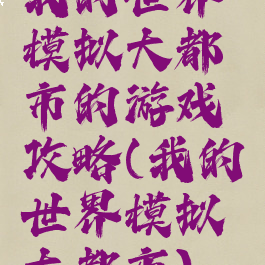 我的世界
模拟大都
市的游戏
攻略(我的
世界模拟
大都市)